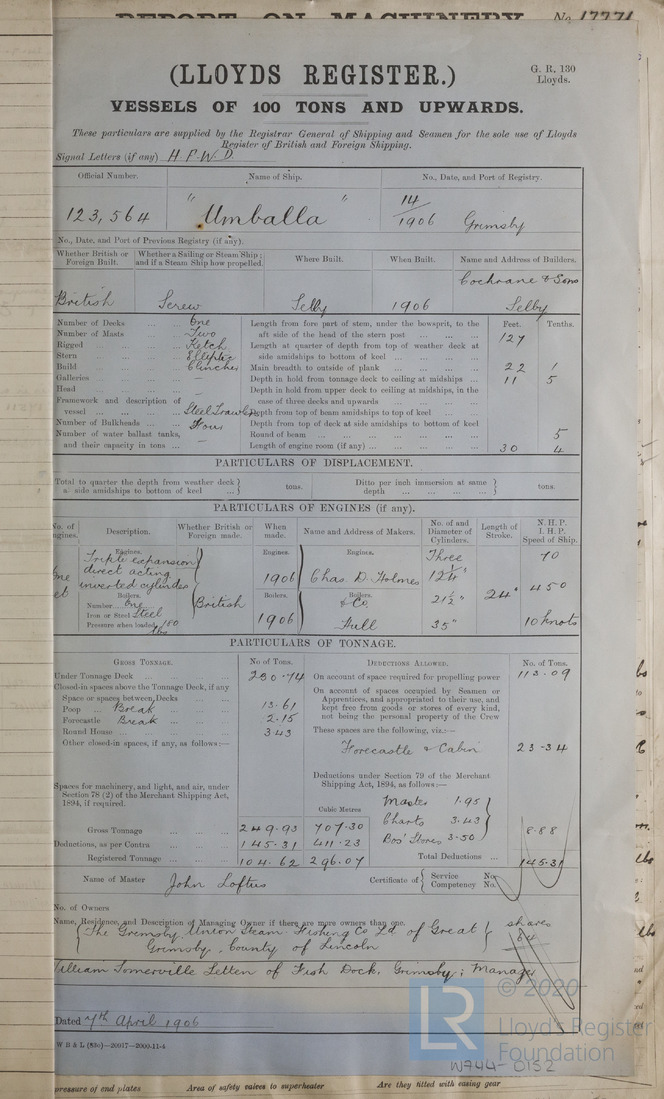 REPORT ON MACHINERY No. 17771
(LLOYDS REGISTER.)
G. R. 130
Lloyds.
VESSELS OF 100 TONS AND UPWARDS.
These particulars are supplied by the Registrar General of Shipping and Seamen for the sole use of Lloyds
Register of British and Foreign Shipping.
Signal Letters (if any) H F W D
Official Number. Name of Ship. No., Date, and Port of Registry.
123,564 "Umballa" 14/1906 Grimsby
No., Date, and Port of Previous Registry (if any).
Whether British or Foreign Built. Whether a Sailing or Steam Ship; and if a Steam Ship how propelled. Where Built. When Built. Name and Address of Builders.
British Screw Selby 1906 Cochrane & Sons Selby
Number of Decks ... ... One
Number of Masts ... ... Two
Rigged ... ... Ketch
Stern ... ... Elliptic
Build ... ... Clincher
Galleries ... ... —
Head ... ... —
Framework and description of
vessel ... ... Steel Trawler
Number of Bulkheads ... ... Four
Number of water ballast tanks,
and their capacity in tons ... —
Feet. Tenths.
Length from fore part of stem, under the bowsprit, to the
aft side of the head of the stern post ... ... 127
Length at quarter of depth from top of weather deck at
side amidships to bottom of keel ... ...
Main breadth to outside of plank ... ... 22 1
Depth in hold from tonnage deck to ceiling at midships ... 11 5
Depth in hold from upper deck to ceiling at midships, in the
case of three decks and upwards ... ...
Depth from top of beam amidships to top of keel ... ...
Depth from top of deck at side amidships to bottom of keel
Round of beam ... ... 5
Length of engine room (if any) ... ... 30 4
PARTICULARS OF DISPLACEMENT.
Total to quarter the depth from weather deck
at side amidships to bottom of keel ... tons.
Ditto per inch immersion at same
depth ... ... tons.
PARTICULARS OF ENGINES (if any).
No. of Engines. Description. Whether British or Foreign made. When made. Name and Address of Makers. No. of and Diameter of Cylinders. Length of Stroke. N. H. P. I. H. P. Speed of Ship.
Engines. Engines. Engines.
Triple expansion
direct acting
inverted cylinder
One
British 1906 Chas. D. Holmes Three 70
12¼"
Boilers. Boilers. Boilers.
Number One
Iron or Steel Steel
Pressure when loaded 180 lbs
1906 & Co. Hull 21½" 24" 450
35" 10 knots
PARTICULARS OF TONNAGE.
GROSS TONNAGE. No of Tons.
Under Tonnage Deck ... ... 230.74
Closed-in spaces above the Tonnage Deck, if any
Space or spaces between Decks ... ...
Poop ... Break ... 13.61
Forecastle Break ... 2.15
Round House ... ... 3.43
Other closed-in spaces, if any, as follows:—
Spaces for machinery, and light, and air, under
Section 78 (2) of the Merchant Shipping Act,
1894, if required.
Cubic Metres
Gross Tonnage ... ... 249.93 707.30
Deductions, as per Contra ... ... 145.31 411.23
Registered Tonnage ... ... 104.62 296.07
DEDUCTIONS ALLOWED. No. of Tons.
On account of space required for propelling power 113.09
On account of spaces occupied by Seamen or
Apprentices, and appropriated to their use, and
kept free from goods or stores of every kind,
not being the personal property of the Crew
These spaces are the following, viz.:—
Forecastle & Cabin 23.34
Deductions under Section 79 of the Merchant
Shipping Act, 1894, as follows:—
Master 1.95
Charts 3.43
Bos' Stores 3.50
8.88
Total Deductions ... 145.31
Name of Master John Loftus Certificate of Service No. Competency No.
No. of Owners
Name, Residence, and Description of Managing Owner if there are more owners than one.
The Grimsby Union Steam Fishing Co Ld. of Great
Grimsby, County of Lincoln
shares
64
William Somerville Letten of Fish Dock, Grimsby; Manager
Dated 7th April 1906
W B & L (83o)—20017—2000-11-4
LR
© 2020
Lloyd's Register
Foundation
W744-0152
pressure of end plates Area of safety valves to superheater Are they fitted with easing gear